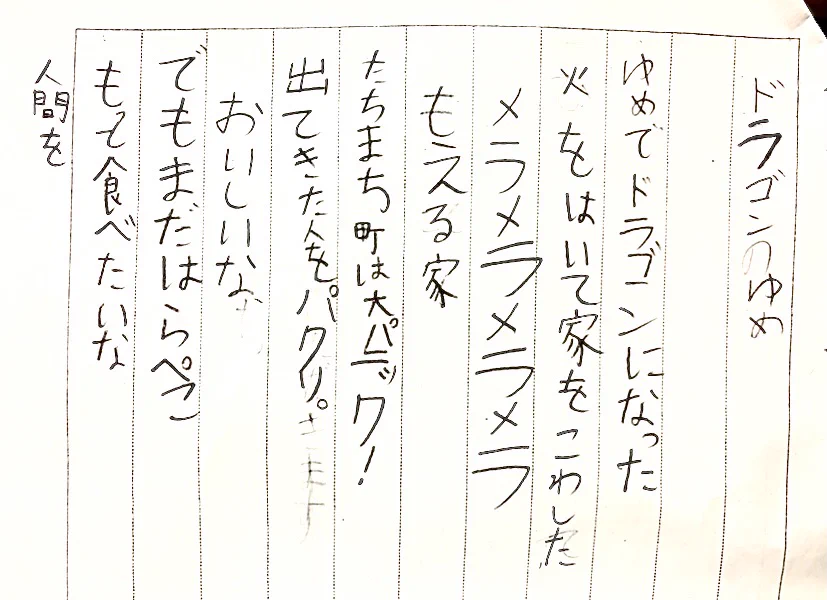 ドラゴンのゆめ
ゆめでドラゴンになった
火をはいて家をこわした
メラメラメラメラ
もえる家
たちまち町は大パニック!
出てきた人をパクリ。
おいしいな
でもまだはらぺこ
もって食べたいな
人間を